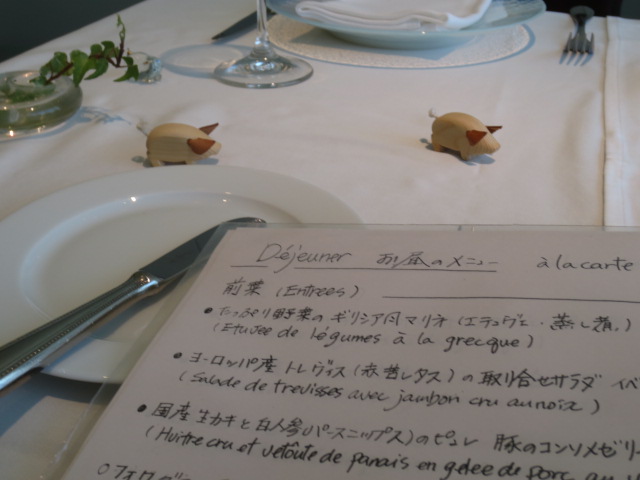 Déjeuner お昼のメニュー à la carte
前菜 (Entrées)
• たっぷり野菜のギリシア風マリネ (エテュヴェ・蒸し煮。)
(Etuvée de légumes à la grecque)
• ヨーロッパ産トレヴィス (赤昔レタス) の取り合せサラダ イベ
(Salade de trevisses avec jambon cru aunoix)
• 国産生カキと白人参 (パースニップス) のピュレ 豚のコンソメゼリー
(Huître cru et veloute de panais en gelée de porc au
○フォワグ